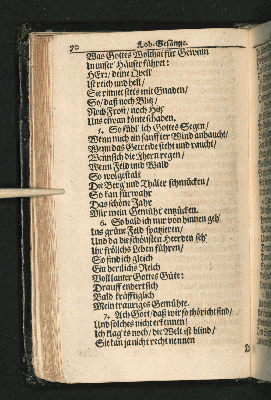 70 Lob-Gesänge.
Was Gottes Wolthat für Gewinn
In unser Häuser führet:
HErr/ deine Quell
Ist reich und hell/
Sie rinnet stets mit Gnaden/
So/ daß noch Blitz/
Noch Frost/ noch Hitz
Uns etwan könte schaden.
5. So fühl' ich Gottes Segen/
Wenn mich ein sanffter Wind anhaucht/
Wenn das Getreide steht und raucht/
Wenn sich die Ähern regen/
Wenn Feld und Wald
So wolgestalt
Die Berg' und Thäler schmücken/
So kan fürwahr
Das schöne Jahr
Mir mein Gemüht entzücken.
6. So bald ich nur von hinnen geh'
Ins grüne Feld spatzieren/
Und da die schönsten Heerden seh'
Ihr frölichs Leben führen/
So find ich gleich
Ein herrlichs Reich
Voll lauter Gottes Güte:
Drauff endert sich
Bald kräfftiglich
Mein trauriges Gemühte.
7. Ach Gott/ daß wir so thöricht sind/
Und solches nicht erkennen!
Ich klag' es noch/ die Welt ist blind/
Sie kan ja nicht recht nennen